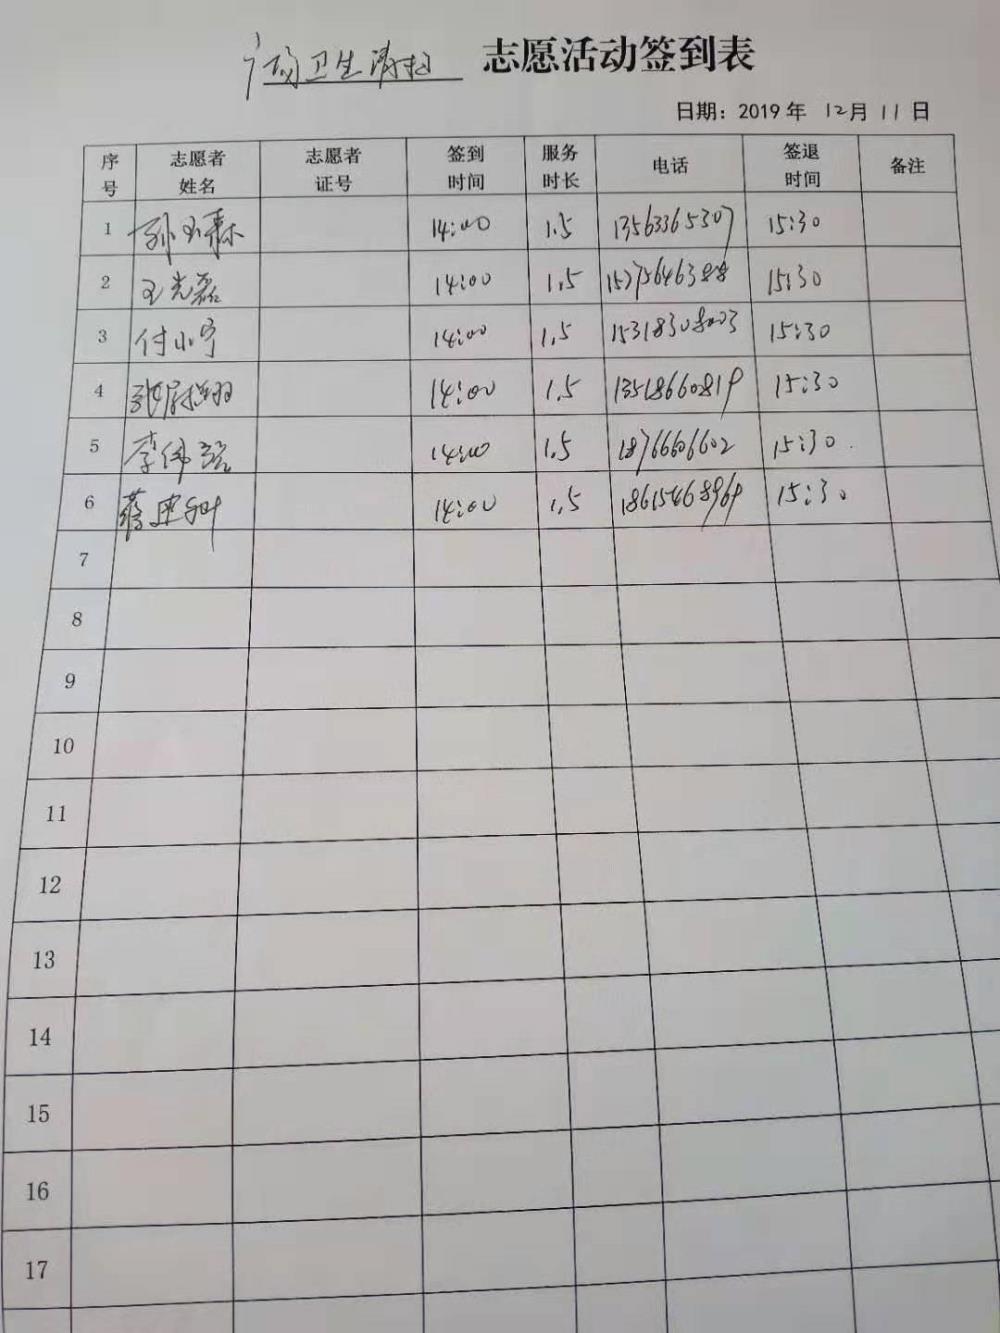 广场卫生清扫 志愿活动签到表
日期：2019年 12月 11日
序号 志愿者姓名 志愿者证号 签到时间 服务时长 电话 签退时间 备注
1 孙玉霖 14:00 1.5 13563365307 15:30
2 王光磊 14:00 1.5 15:30
3 付小宁 14:00 1.5 15318308003 15:30
4 14:00 1.5 13518660819 15:30
5 李伟 14:00 1.5 18766606602 15:30
6 蒋建 14:00 1.5 18615468969 15:30
7
8
9
10
11
12
13
14
15
16
17